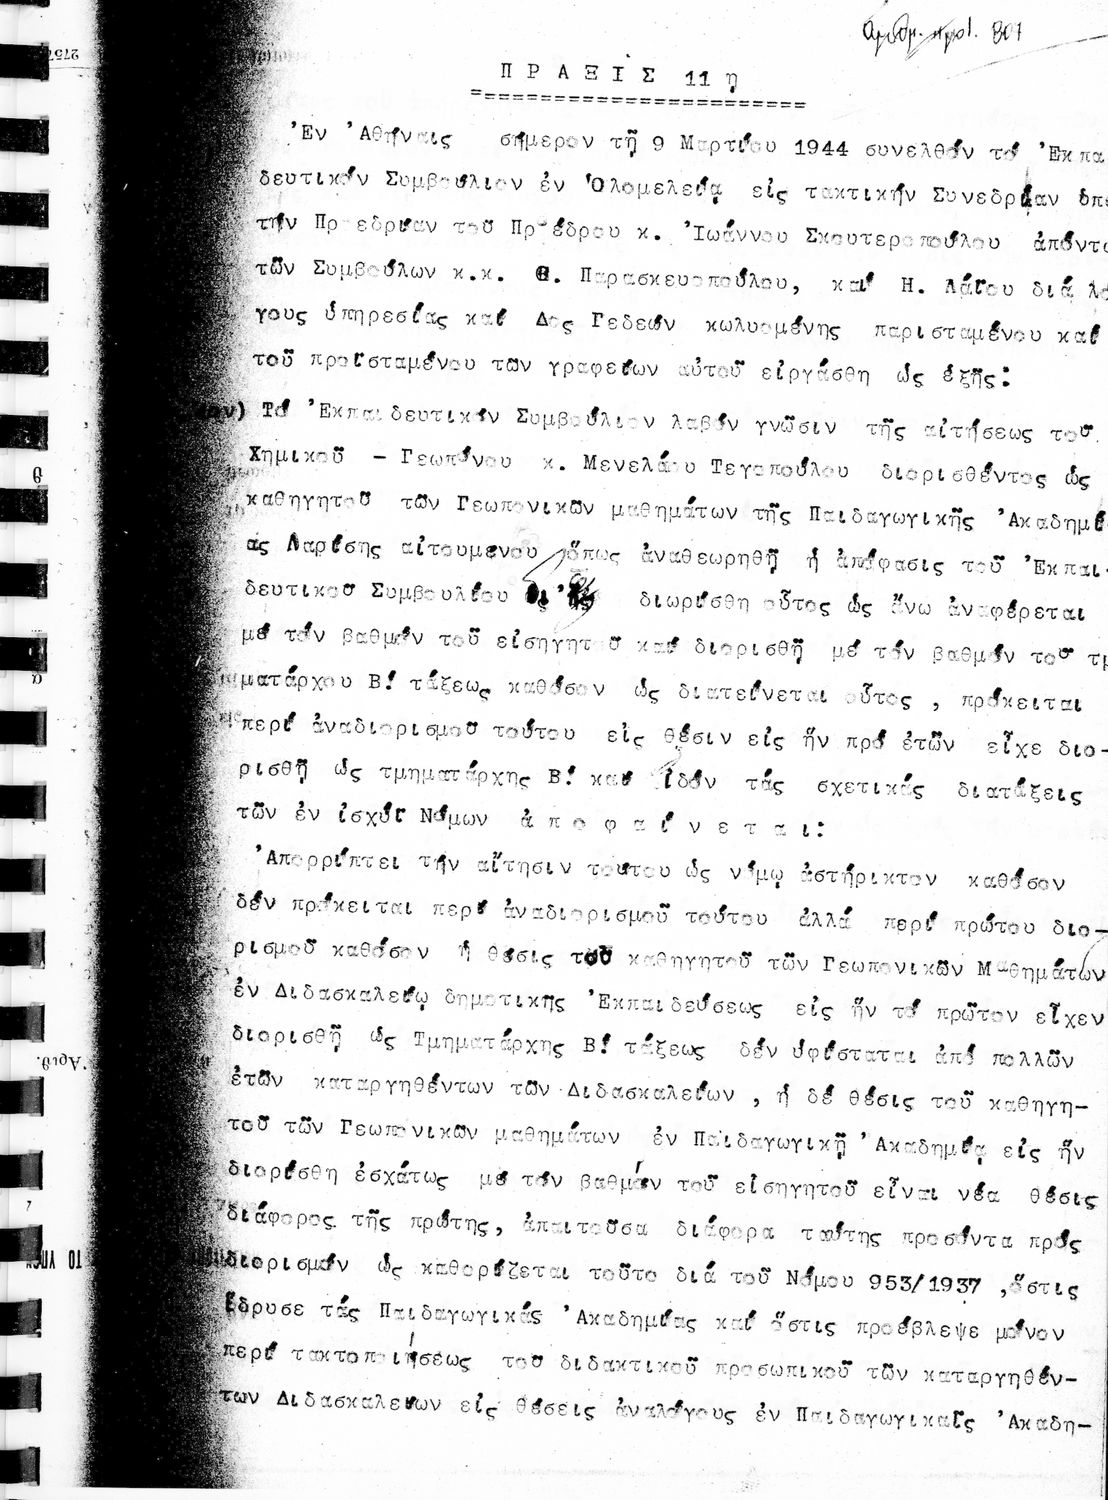 Αριθμ. πρωτ. 301
Π Ρ Α Ξ Ι Σ 11 η
Ἐν Ἀθήναις σήμερον τῇ 9 Μαρτίου 1944 συνελθόν τό Ἐκπαι
δευτικόν Συμβούλιον ἐν Ὁλομελείᾳ εἰς τακτικήν Συνεδρίαν ὑπό
τήν Προεδρίαν τοῦ Προέδρου κ. Ἰωάννου Σκουτεροπούλου ἀπόντω
τῶν Συμβούλων κ.κ. Θ. Παρασκευοπούλου, καί Η. Λάϊου διά λό
γους ὑπηρεσίας καί Δος Γεδεών κωλυομένης παρισταμένου καί
τοῦ προϊσταμένου τῶν γραφείων αὐτοῦ εἰργάσθη ὡς ἑξῆς:
ον) Τό Ἐκπαιδευτικόν Συμβούλιον λαβόν γνῶσιν τῆς αἰτήσεως τοῦ
Χημικοῦ – Γεωπόνου κ. Μενελάου Τεγοπούλου διορισθέντος ὡς
καθηγητοῦ τῶν Γεωπονικῶν μαθημάτων τῆς Παιδαγωγικῆς Ἀκαδημί
ας Λαρίσης αἰτουμένου ὅπως ἀναθεωρηθῇ ἡ ἀπόφασις τοῦ Ἐκπαι-
δευτικοῦ Συμβουλίου διωρίσθη οὗτος ὡς ἄνω ἀναφέρεται
μέ τόν βαθμόν τοῦ εἰσηγητοῦ καί διορισθῇ μέ τόν βαθμόν τοῦ τμ
ματάρχου Β! τάξεως καθόσον ὡς διατείνεται οὗτος , πρόκειται
περί ἀναδιορισμοῦ τούτου εἰς θέσιν εἰς ἥν πρό ἐτῶν εἶχε διο-
ρισθῇ ὡς τμηματάρχης Β! καί ἰδόν τάς σχετικάς διατάξεις
τῶν ἐν ἰσχύϊ Νόμων ἀ π ο φ α ί ν ε τ α ι :
Ἀπορρίπτει τήν αἴτησιν τούτου ὡς νόμῳ ἀστήρικτον καθόσον
δέν πρόκειται περί ἀναδιορισμοῦ τούτου ἀλλά περί πρώτου διο-
ρισμοῦ καθόσον ἡ θέσις τοῦ καθηγητοῦ τῶν Γεωπονικῶν Μαθημάτων
ἐν Διδασκαλείῳ δημοτικῆς Ἐκπαιδεύσεως εἰς ἥν τό πρῶτον εἶχεν
διορισθῇ ὡς Τμηματάρχης Β! τάξεως δέν ὑφίσταται ἀπό πολλῶν
ἐτῶν καταργηθέντων τῶν Διδασκαλείων , ἡ δέ θέσις τοῦ καθηγη-
τοῦ τῶν Γεωπονικῶν μαθημάτων ἐν Παιδαγωγικῇ Ἀκαδημίᾳ εἰς ἥν
διορίσθη ἐσχάτως μέ τόν βαθμόν τοῦ εἰσηγητοῦ εἶναι νέα θέσις
διάφορος τῆς πρώτης, ἀπαιτοῦσα διάφορα ταύτης προσόντα πρός
διορισμόν ὡς καθορίζεται τοῦτο διά τοῦ Νόμου 953/1937 ,ὅστις
ἵδρυσε τάς Παιδαγωγικάς Ἀκαδημίας καί ὅστις προέβλεψε μόνον
περί τακτοποιήσεως τοῦ διδακτικοῦ προσωπικοῦ τῶν καταργηθέν-
των Διδασκαλείων εἰς θέσεις ἀναλόγους ἐν Παιδαγωγικαῖς Ἀκαδη-